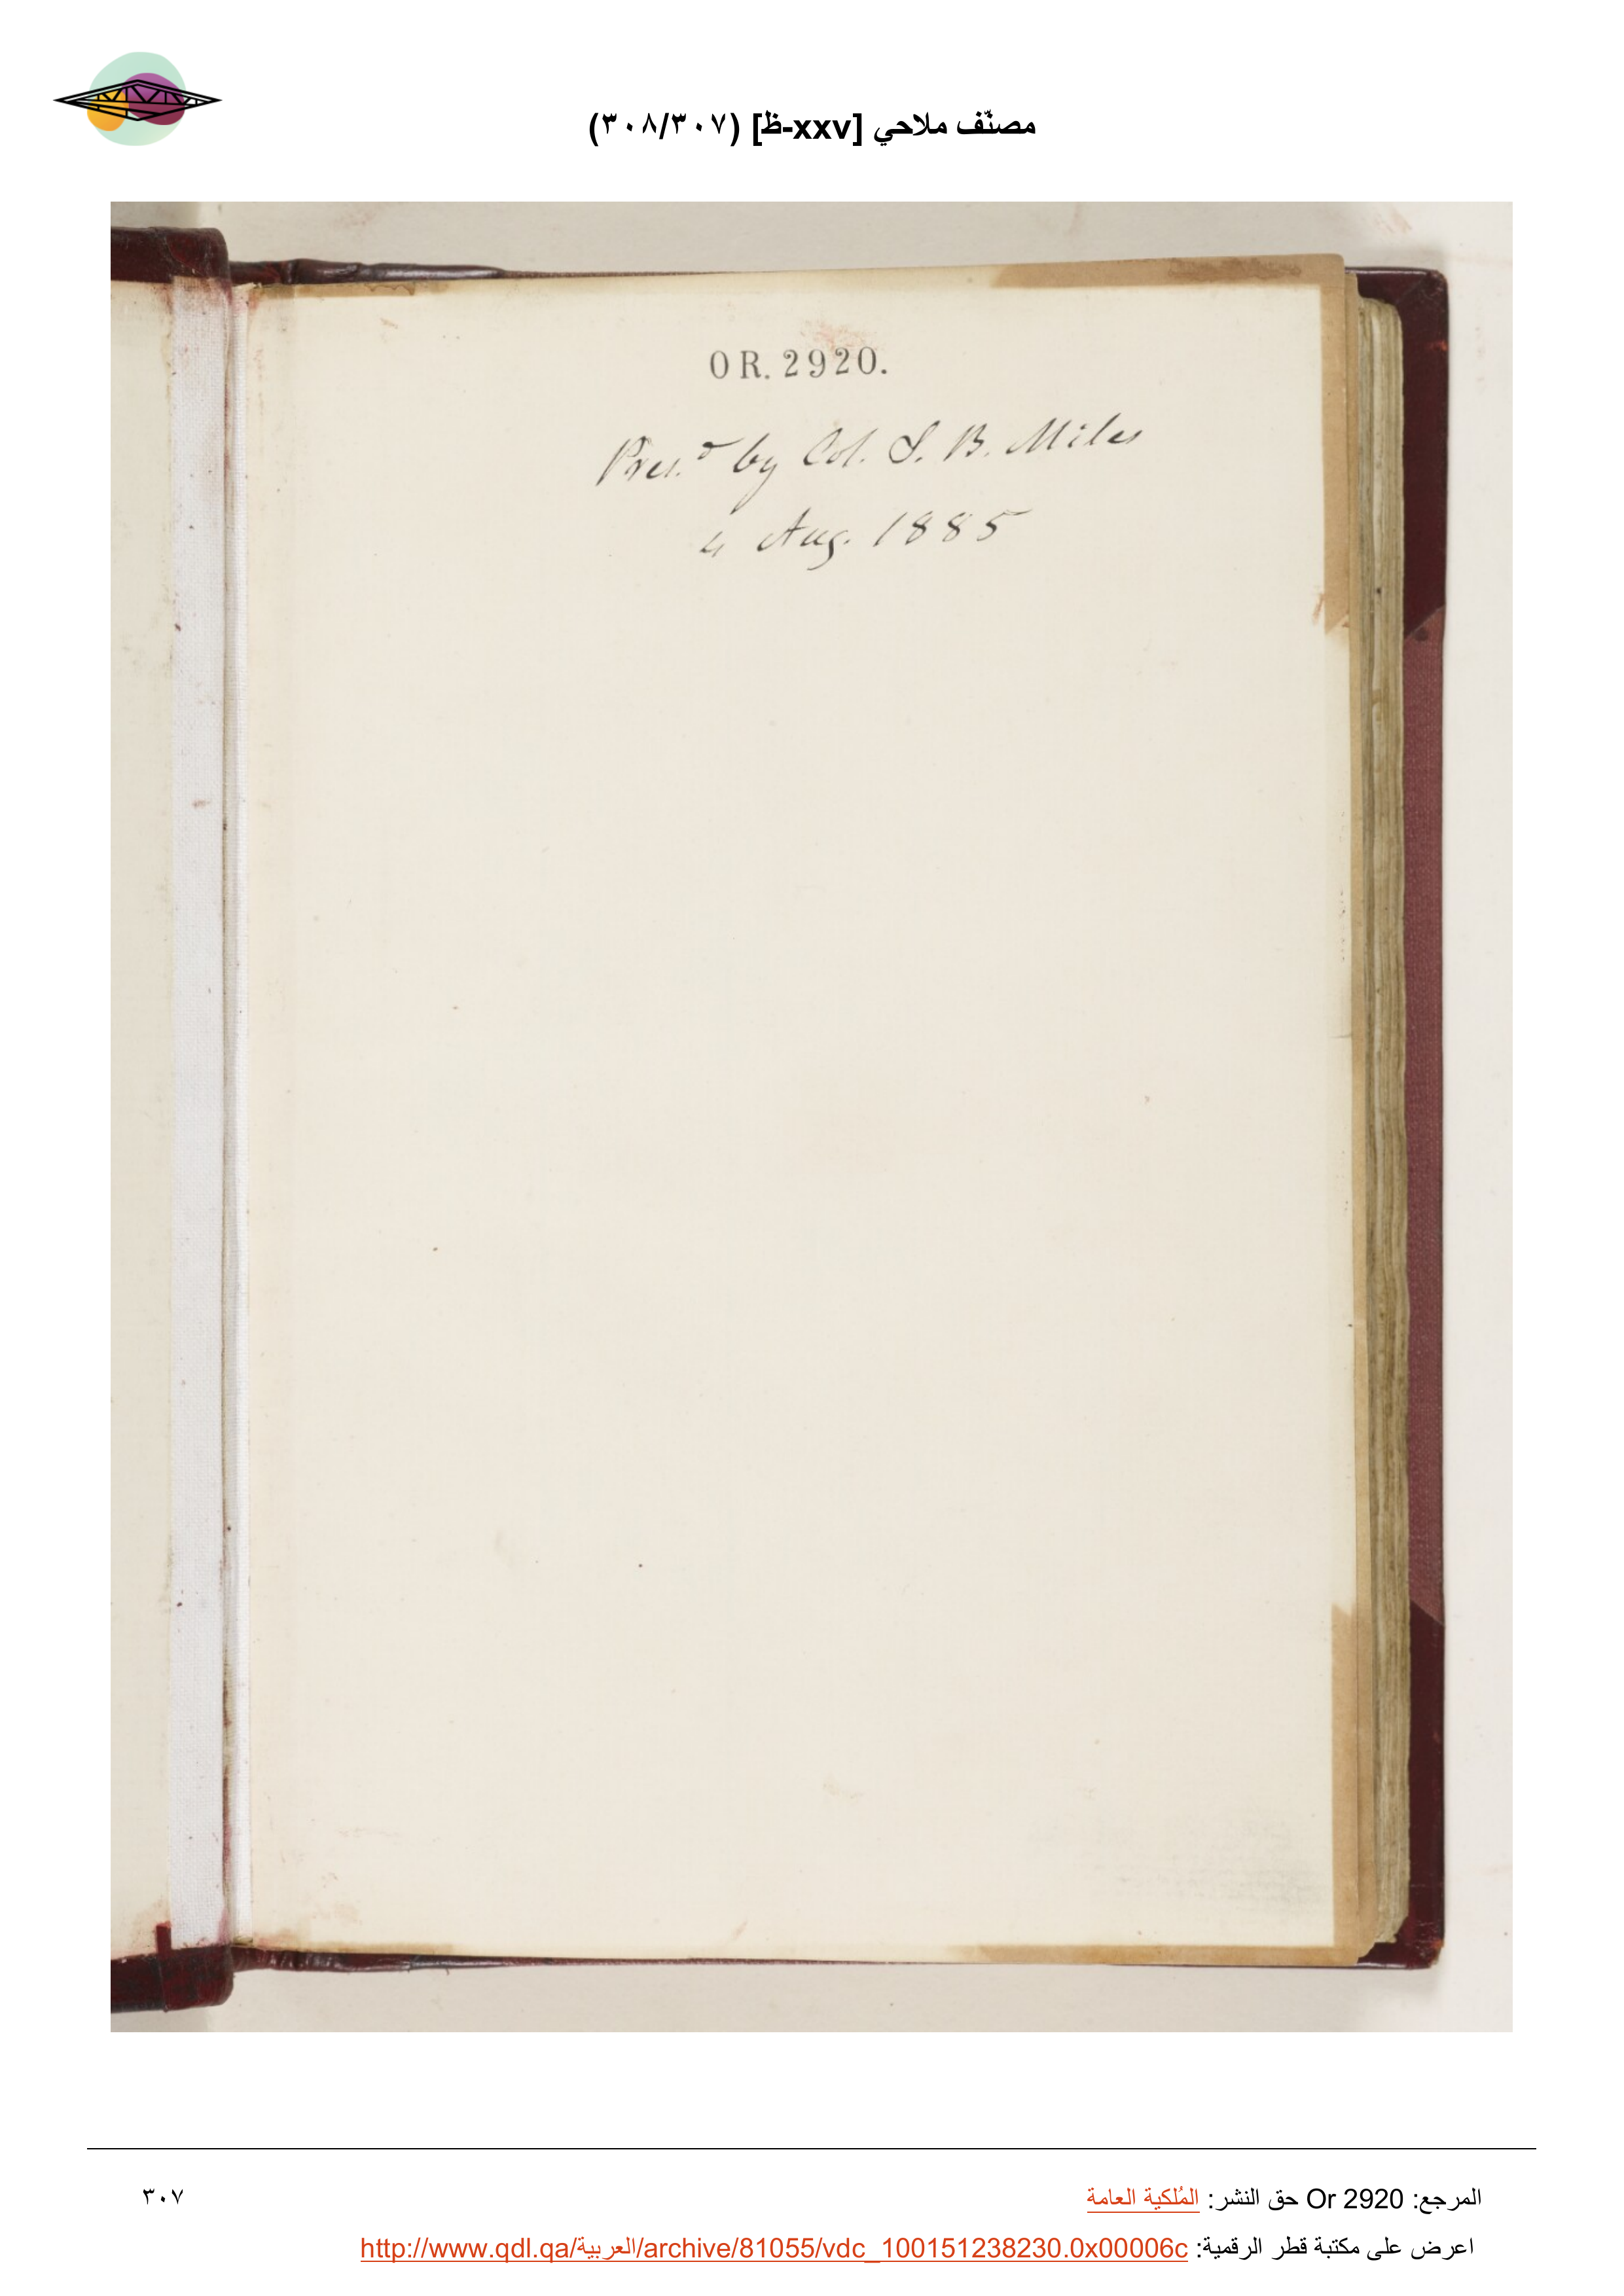 مصنّف ملاحي [xxv-ظ] (٣٠٨/٣٠٧)
OR. 2920.
Pres.d by Col. S. B. Miles
4 Aug. 1885
المرجع: Or 2920 حق النشر: المُلكية العامة
٣٠٧
اعرض على مكتبة قطر الرقمية: http://www.qdl.qa/العربية/archive/81055/vdc_100151238230.0x00006c